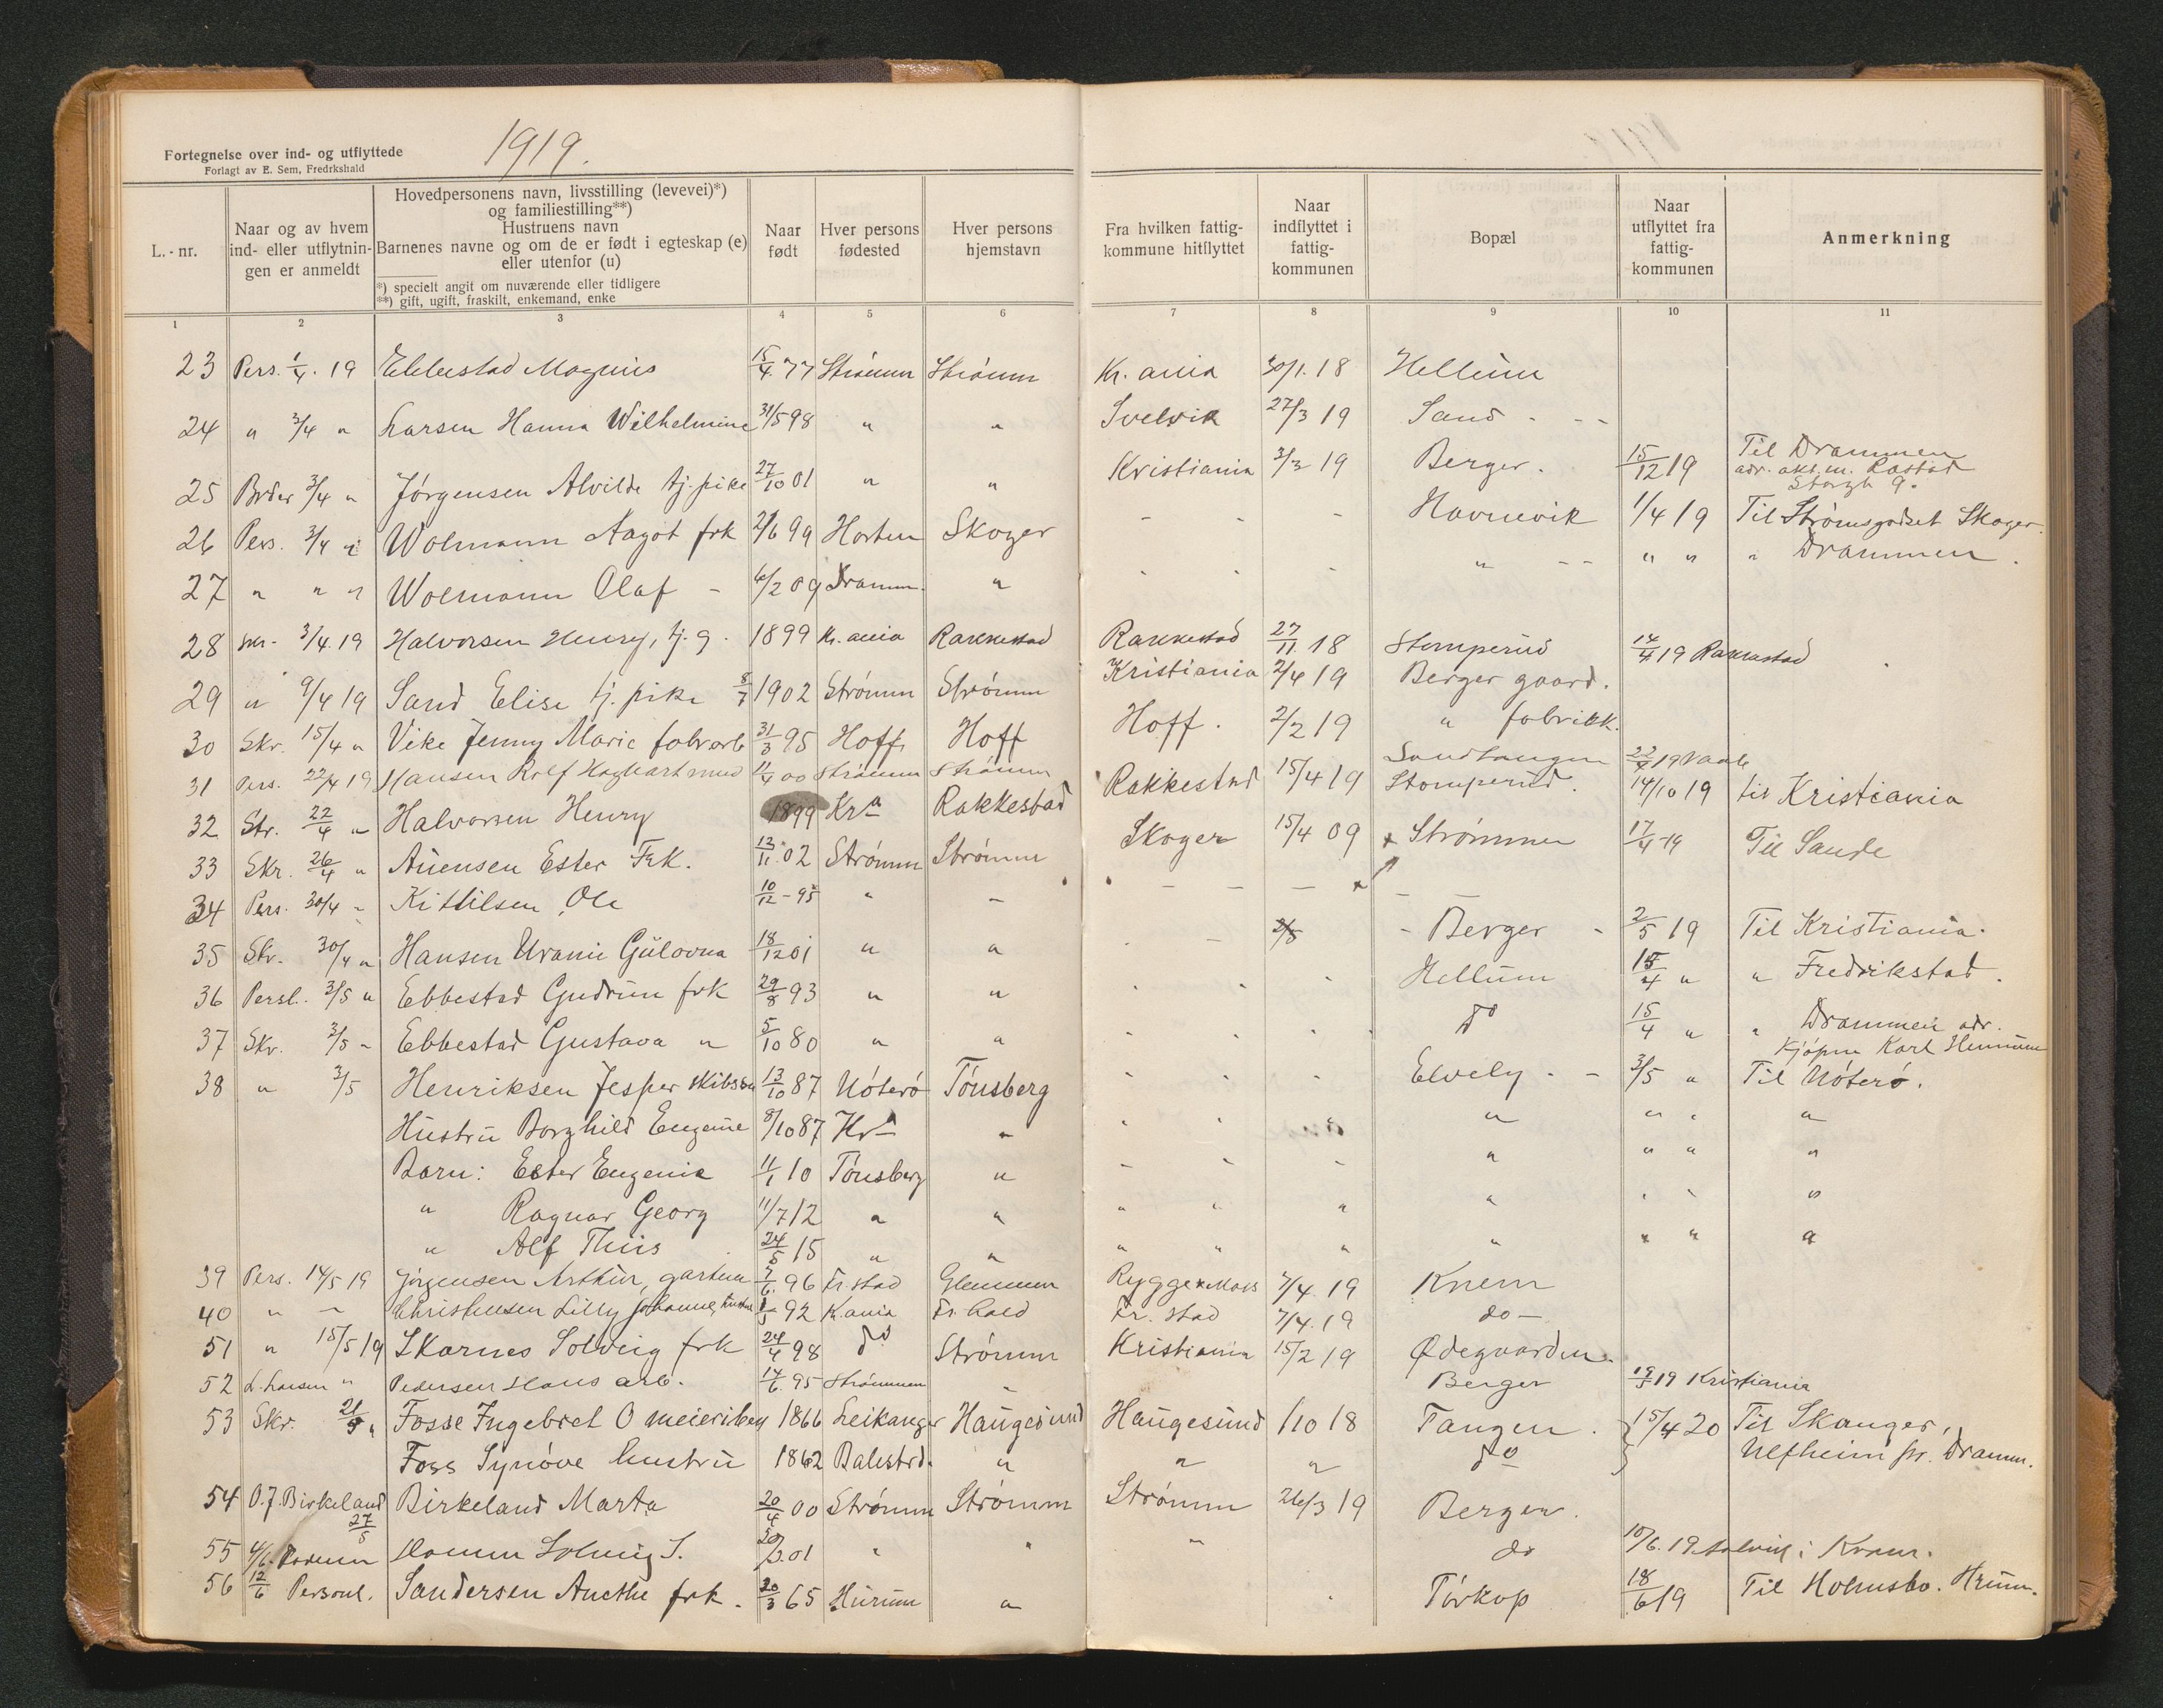 Fortegnelse over ind- og utflyttede
Forlagt av E. Sem, Fredrkshald
1919.
L.-nr.
Naar og av hvem ind- eller utflytningen er anmeldt
Hovedpersonens navn, livsstilling (levevei)*)
og familiestilling**)
Hustruens navn
Barnenes navne og om de er født i egteskap (e)
eller utenfor (u)
*) specielt angit om nuværende eller tidligere
**) gift, ugift, fraskilt, enkemand, enke
Naar født
Hver persons fødested
Hver persons hjemstavn
Fra hvilken fattigkommune hitflyttet
Naar indflyttet i fattigkommunen
Bopæl
Naar utflyttet fra fattigkommunen
Anmerkning
1 2 3 4 5 6 7 8 9 10 11
23 Pers. 1/4. 19 Ebbestad Magnus 15/4. 77 Strömm Strömm Kr. ania 30/1. 18 Hellum
24 " 3/4 " Larsen Hanna Wilhelmine 31/5 98 " " Svelvik 27/3 19 Sand - - -
25 Brder 3/4 " Jörgensen Alvilde tj. pike 27/10 01 " " Kristiania 3/3 19 Berger. 15/12 19 Til Drammen
adr. akt. m. Rastad
Storgt 9.
26 Pers. 3/4 " Wolmann Aagot frk 2/6 99 Horten Skoger - - - Havnevik 1/4 19 Til Strömsgodset Skoger.
27 " " " Wolmann Olaf - 6/2 09 Dramm. " - - - " - - " " " Drammen.
28 Skr- 3/4. 19 Halvorsen Henry, tj. g. 1899 Kr. ania Rakkestad Rakkestad 27/11. 18 Stomperud 14/4 19 Rakkestad
29 " 9/4 19 Sand Elise tj. pike 8/7 1902 Strömm Strömm Kristiania 2/4 19 Berger gaard.
30 Skr. 15/4 " Vike Jenny Marie fabrarb 31/3 95 Hoff Hoff Hoff. 2/2 19 " fabrikk.
31 Pers. 22/4 19 Hansen Rolf Haghart 11/4 00 Strömm Strömm Sandtangen 22/4 19 Vaale
32 Str. 22/4 " Halvorsen Henry 1899 Kra Rakkestad Rakkestad 15/4 19 Stomperud. 14/10 19 til Kristiania
33 Skr. 26/4 " Auensen Ester Frk. 13/11. 02 Strömm Strömm Skoger 15/4 09 x Strömmen 17/4 -19 Til Sande
34 Pers. 30/4 - Kittilsen Ole 10/12 - 95 " - - - - x - -
35 Skr. 30/4 " Hansen Uranie Gulovna 18/12 01 " " - - 2/5 - Berger - 2/5 19 Til Kristiania.
36 Persl. 3/5 " Ebbestad Gudrun frk 29/8 93 " " - - - Hellum 15/4 " " Fredrikstad.
37 Skr. 3/5 - Ebbestad Gustava " 5/10 80 " " - - - do 15/4 " " Drammen adr.
Kjöpm Karl Hennum
38 " 3/5 Henriksen Jesper skibs 13/10 87 Nöterö Tönsberg - - - Elvely - - 3/5 " Til Nöterö.
Hustru Borghild Eugenie 8/10 87 Kra " - - " " " " "
Barn: Ester Eugenie 11/1 10 Tönsberg " - - - " " " "
" Ragnar Georg 11/7 12 " " " " " " " " "
" Alf Thiis 24/5 15 " " " " " " " " "
39 Pers. 14/5 19 Jörgensen Arthur, gartner 7/6. 96 Fr. stad Glemmen Rygge x Moss 7/4. 19 Knem
40 " - Christensen Lilly Johanne hustru 1/5 92 K. ania Fr. hald Fr. stad 7/4. 19 do -
51 " 15/5 19 Skarnes Solveig frk 24/4 98 do Strömm Kristiania 15/2 19 Ødegaarden.
52 L. Larsen " Pedersen Hans arb. 14/6. 95 Strömmen " Berger 19/5 19 Kristiania
53 Skr. 21/5 " Fosse Ingebret O meieribest 1866 Leikanger Haugesund Haugesund 1/10 18 Tangen. 15/4 20 Til Skanger,
Foss Synöve hustru 1862 Balestrd. " " " do Ulfheim pr. Dramm.
54 O. J. Birkeland 27/5 Birkeland Marta 20/4 00 Strömm Strömm Strömm 26/3 19 Berger.
55 4/6. Hamm Solveig S. 20/3. 01 " " " do 10/6. 19 Selvik i
56 12/6 Personl. Sandersen Anethe frk. 20/3 65 Hurum " - Törkop 18/6 19 Til Holmsbo. Hrum.